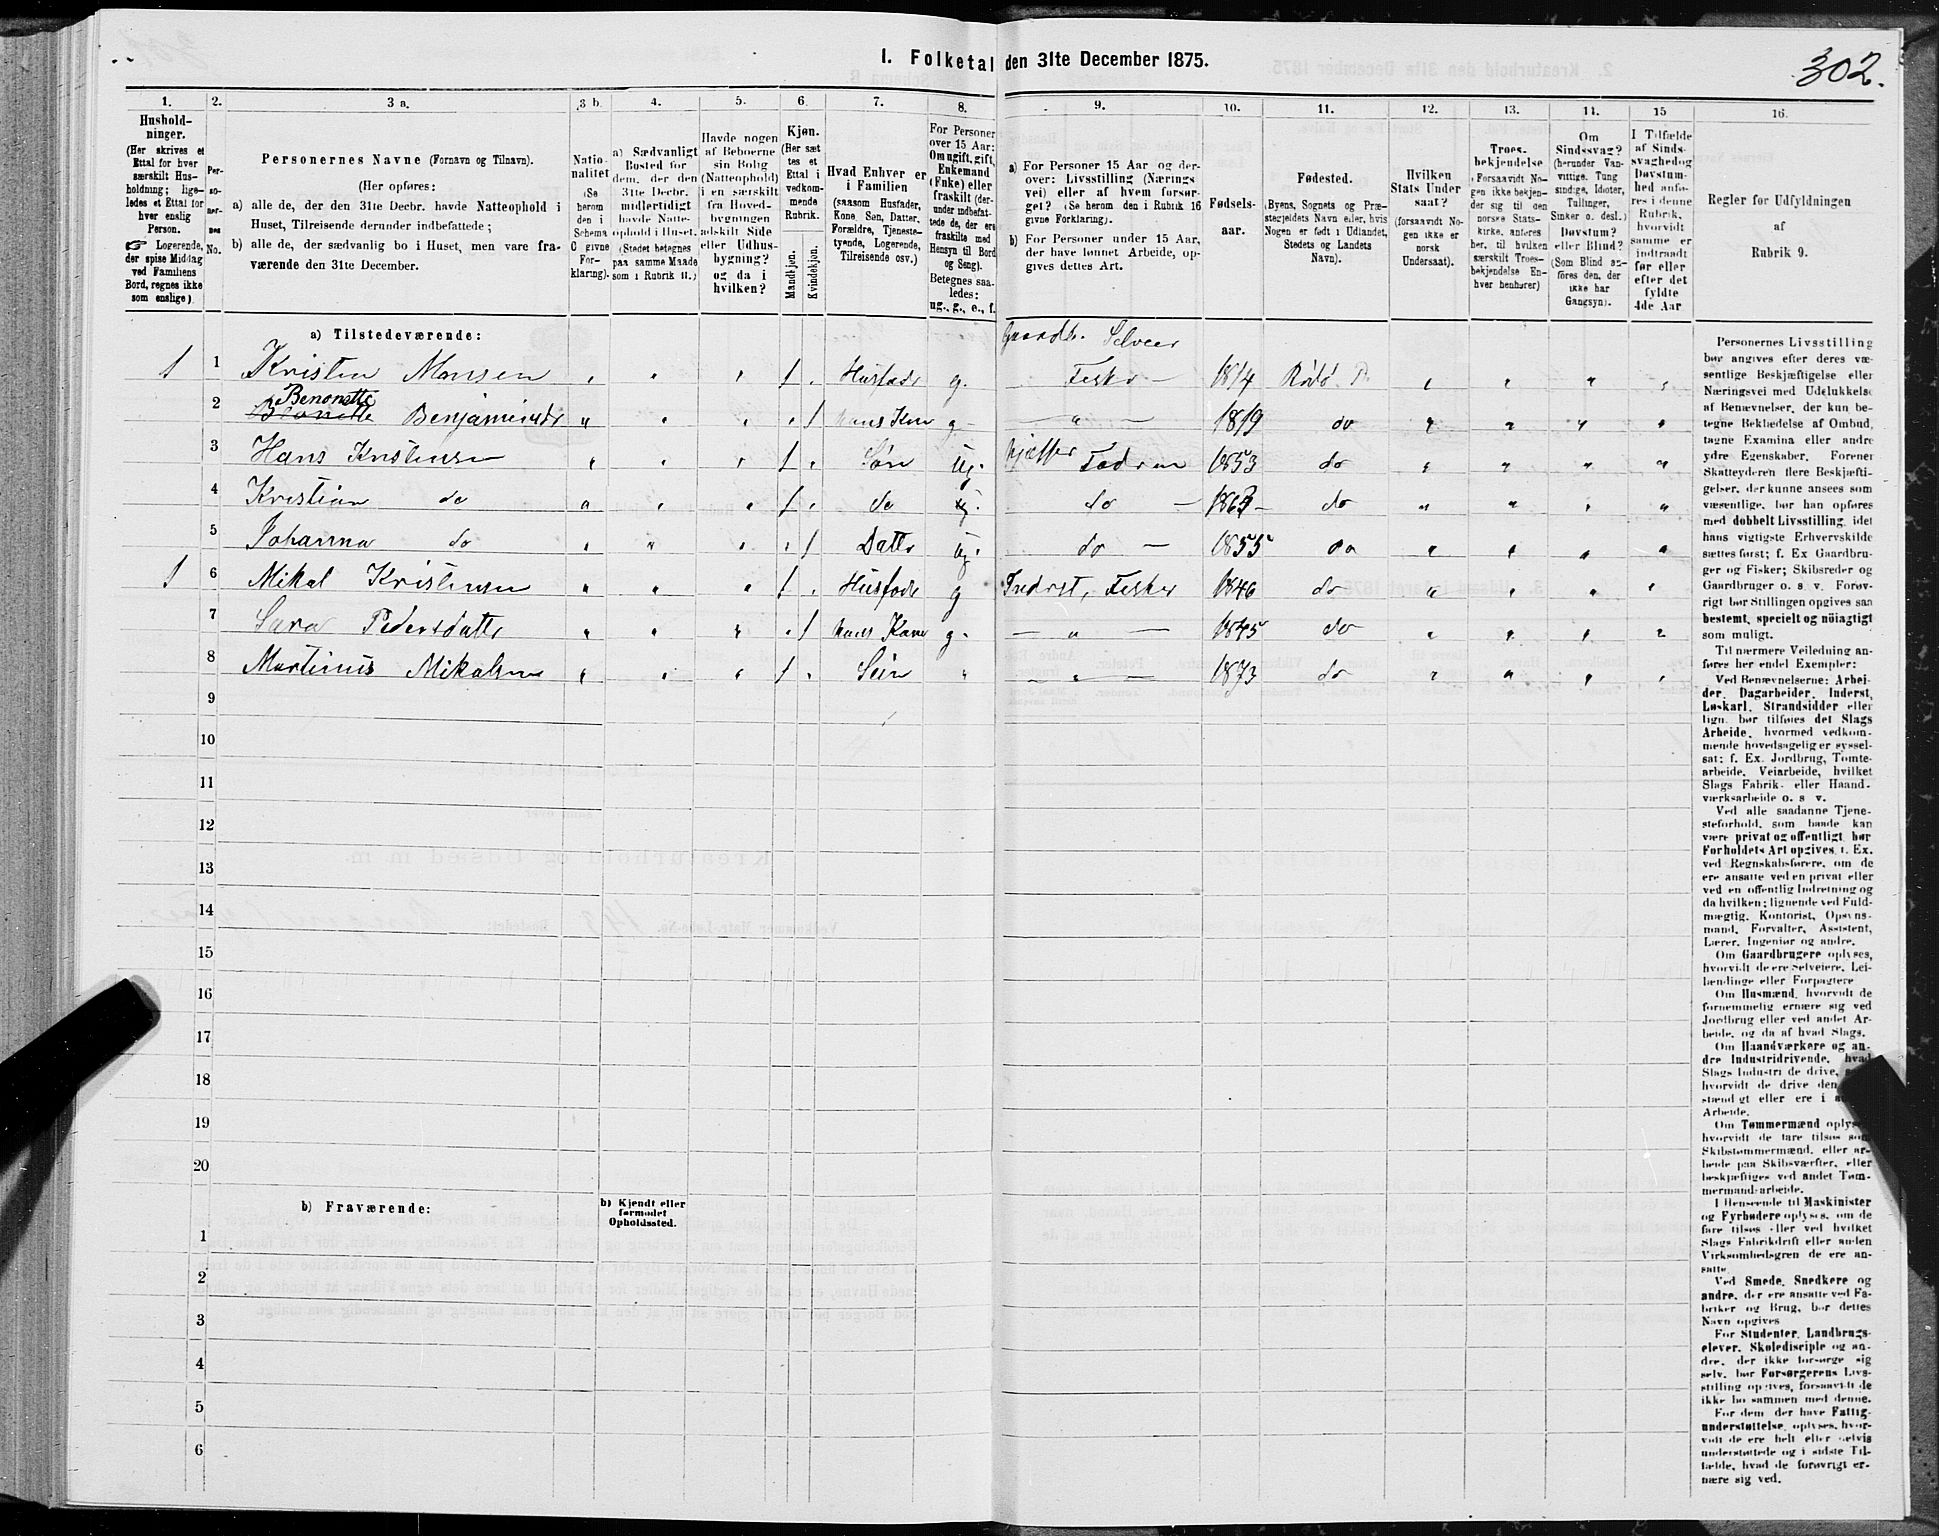 302.
I. Folketal den 31te December 1875.
1. 2. 3 a. 3 b. 4. 5. 6. 7. 8. 9. 10. 11. 12. 13. 14. 15 16.
Hushold-
ninger.
(Her skrives et
Ettal for hver
særskilt Hus-
holdning; lige-
ledes et Ettal for
hver enslig
Person.
☞ Logerende,
der spise Middag
ved Familiens
Bord, regnes ikke
som enslige).
Per-
so-
ner-
nes
No.
Personernes Navne (Fornavn og Tilnavn).
(Her opføres:
a) alle de, der den 31te Decbr. havde Natteophold i
Huset, Tilreisende derunder indbefattede;
b) alle de, der sædvanlig bo i Huset, men vare fra-
værende den 31te December.
Natio-
nalitet
(Se
herom
den i
Schema
C givne
For-
klaring).
a) Sædvanligt
Bosted for
dem, der den
31te Decbr.
midlertidigt
havde Natte-
ophold i Huset.
(Stedet betegnes
paa samme Maade
som i Rubrik 11.)
Havde nogen
af Beboerne
sin Bolig
(Natteophold)
i en særskilt
fra Hoved-
bygningen
adskilt Side
eller Udhus-
bygning?
og da i
hvilken?
Kjøn.
(Her sæt
tes et
Ettal i
vedkom-
mende
Rubrik.
Mandkjøn.
Kvindekjøn.
Hvad Enhver er
i Familien
(saasom Husfader,
Kone, Søn, Datter,
Forældre, Tjeneste-
tyende, Logerende,
Tilreisende osv.)
For Personer
over 15 Aar:
Om ugift, gift,
Enkemand
(Enke) eller
fraskilt (der-
under indbefat-
tede de, der ere
fraskilte med
Hensyn til Bord
og Seng).
Betegnes saa-
ledes:
ug., g., e., f.
a) For Personer 15 Aar og der-
over: Livsstilling (Nærings-
vei) eller af hvem forsør-
get? (Se herom den i Rubrik 16
givne Forklaring).
b) For Personer under 15 Aar,
der have lønnet Arbeide, op-
gives dettes Art.
Fødsels-
aar.
Fødested.
(Byens, Sognets og Præ-
stegjeldets Navn eller, hvis
Nogen er født i Udlandet,
Stedets og Landets
Navn).
Hvilken
Stats Under
saat?
(forsaavidt No-
gen ikke er
norsk
Undersaat).
Troes-
bekjendelse
(Forsaavidt No-
gen ikke bekjen-
der sig til den
norske Stats-
kirke, anføres
her, til hvilken
særskilt Troes-
bekjendelse En-
hver henhører)
Om
Sindssvag?
(herunder Van-
vittige, Tung
sindige, Idioter,
Tullinger,
Sinker o. desl.)
Døvstum?
eller Blind?
(Som Blind an-
føres den, der
ikke har
Gangsyn).
I Tilfælde
af Sinds-
svaghed og
Døvstum-
hed anfø-
res i denne
Rubrik,
hvorvidt
samme er
indtraadt
før eller
efter det
fyldte
4de Aar
Regler før Udfyldningen
af
Rubrik 9.
a) Tilstedeværende:
Gaardb. Selveier
1 1 Kristen Monsen 1 Husfader g. Fisker 1814 Rødø P.
2 Benonette Benjaminsdtr 1 hans Kone g. 1819 do
3 Hans Kristensen 1 Søn ug. hjælper Faderen 1853 do
4 Kristian do 1 do ug. do 1863 do
5 Johanna do 1 Datter ug. do 1855 do
1 6 Mikal Kristensen 1 Husfader g Inderst, Fisker 1846 do
7 Sara Pedersdatter 1 hans Kone g. 1845 do
8 Martinus Mikalsen 1 Søn 1873 do
9
10
11
12
13
14
15
16
17
18
19
20
b) Fraværende:
b) Kjendt eller
formodet
Opholdssted.
1
2
3
4
5
6
Personernes Livsstilling
bør angives efter deres væ-
sentlige Beskjæftigelse eller
Næringsvei med Udelukkelse
af Benævnelser, der kun be-
tegne Beklædelse af Ombud,
tagne Examina eller andre
ydre Egenskaber. Forener
Skatteyderen flere Beskjæfti-
gelser, der kunne ansees som
væsentlige, bør han opføres
med dobbelt Livsstilling, idet
hans vigtigste Erhvervskilde
sættes først; f. Ex Gaardbru-
ger og Fisker; Skibsreder og
Gaardbruger o. s. v. Forøv-
rigt bør Stillingen opgives saa
bestemt, specielt og nöiagtigt
som muligt.
Til nærmere Veiledning an-
føres her endel Exempler:
Ved Benævnelserne: Arbei-
der, Dagarbeider, Inderst,
Løskarl, Strandsidder eller
lign. bør tilføies det Slags
Arbeide, hvormed vedkom-
mende hovedsagelig er syssel-
sat; f. Ex. Jordbrug, Tomte-
arbeide, Veiarbeide, hvilket
Slags Fabrik- eller Haand-
værksarbeide o. s v.
Ved alle saadanne Tjene-
steforhold, som baade kan
være privat og offentligt, bør
Forholdets Art opgives, f. Ex.
ved Regnskabsførere, om de
ere ansatte ved en privat eller
ved en offentlig Indretning og
da hvilken; lignende ved Fuld-
mægtig, Kontorist, Opsyns-
mand, Forvalter, Assistent,
Lærer, Ingeniør og andre.
Om Gaardbrugere oplyses,
hvorvidt de ere Selveiere, Lei-
lændinge eller Forpagtere
Om Husmænd, hvorvidt de
fornemmelig ernære sig ved
Jordbrug eller ved andet Ar-
beide, og da af hvad Slags.
Om Haandværkere og an-
dre Industridrivende, hvad
Slags Industri de drive,
hvorvidt de drive den
stændigt eller ere i
Arbeide.
Om Tømmermænd oplyses
hvorvidt de fare tilsøs som
Skibstømmermænd, eller ar-
beide paa Skibsværfter, eller
beskjæftiges ved andet Tøm-
mermandarbeide.
I Henseende til Maskinister
og Fyrbødere oplyses, om de
fare tilsøs eller ved hvilket
Slags Fabrikdrift eller anden
Virksomhedsgren de ere an-
satte.
Ved Smede, Snedkere og
andre, der ere ansatte ved Fa-
briker og Brug, bør dettes
Navn opgives
For Studenter, Landbrugs-
elever, Skoledisciple og an-
dre, der ikke forsørge sig
selv, bør Forsørgerens Livs-
stilling opgives, forsaavidt de
ikke bo sammen med denne.
For dem, der have Fattig-
understøttelse, oplyses, hvor-
vidt de ere helt eller delvis
understøttede og i sidste Til-
fælde, hvad de forøvrigt er-
nære sig ved.